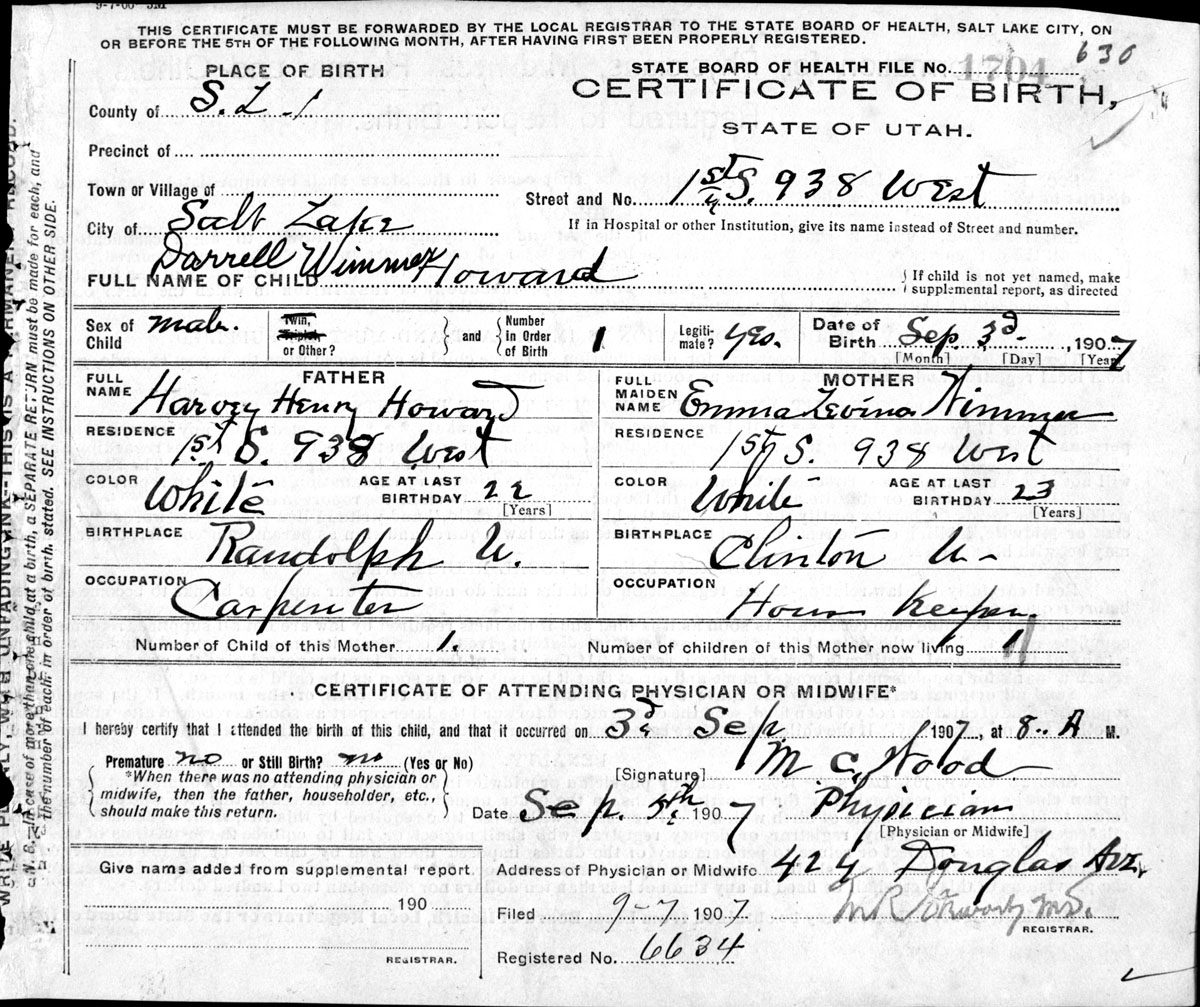 9-7-06-3M
THIS CERTIFICATE MUST BE FORWARDED BY THE LOCAL REGISTRAR TO THE STATE BOARD OF HEALTH, SALT LAKE CITY, ON
OR BEFORE THE 5TH OF THE FOLLOWING MONTH, AFTER HAVING FIRST BEEN PROPERLY REGISTERED.
630
STATE BOARD OF HEALTH FILE No. 1704
PLACE OF BIRTH
CERTIFICATE OF BIRTH,
STATE OF UTAH.
County of S. L.
Precinct of
Town or Village of
Street and No. 1st S. 938 West
City of Salt Lake
If in Hospital or other Institution, give its name instead of Street and number.
FULL NAME OF CHILD Darrell Wimmer Howard
If child is not yet named, make
supplemental report, as directed
Sex of Child male.
Twin, Triplet or Other? and Number in Order of Birth 1
Legitimate? yes.
Date of Birth Sep. 3d 1907
[Month] [Day] [Year]
FATHER
FULL NAME Harvey Henry Howard
RESIDENCE 1st S. 938 West
COLOR White AGE AT LAST BIRTHDAY 22 [Years]
BIRTHPLACE Randolph U.
OCCUPATION Carpenter
MOTHER
FULL MAIDEN NAME Emma Levina Wimmer
RESIDENCE 1st S. 938 West
COLOR White AGE AT LAST BIRTHDAY 23 [Years]
BIRTHPLACE Clinton U-
OCCUPATION House Keeper
Number of Child of this Mother 1. Number of children of this Mother now living 1
CERTIFICATE OF ATTENDING PHYSICIAN OR MIDWIFE*
I hereby certify that I attended the birth of this child, and that it occurred on 3d Sep 1907, at 8.. A M.
Premature no or Still Birth? no (Yes or No)
*When there was no attending physician or
midwife, then the father, householder, etc.,
should make this return.
[Signature] M C. Wood
Date Sep. 5th 1907 Physician
[Physician or Midwife]
Give name added from supplemental report
190
REGISTRAR.
Address of Physician or Midwife 424 Douglas Ave.
Filed 9-7 1907
REGISTRAR.
Registered No. 6634
N. B. In case of more than one child at a birth, a SEPARATE RETURN must be made for each, and
the number of each, in order of birth, stated. SEE INSTRUCTIONS ON OTHER SIDE.